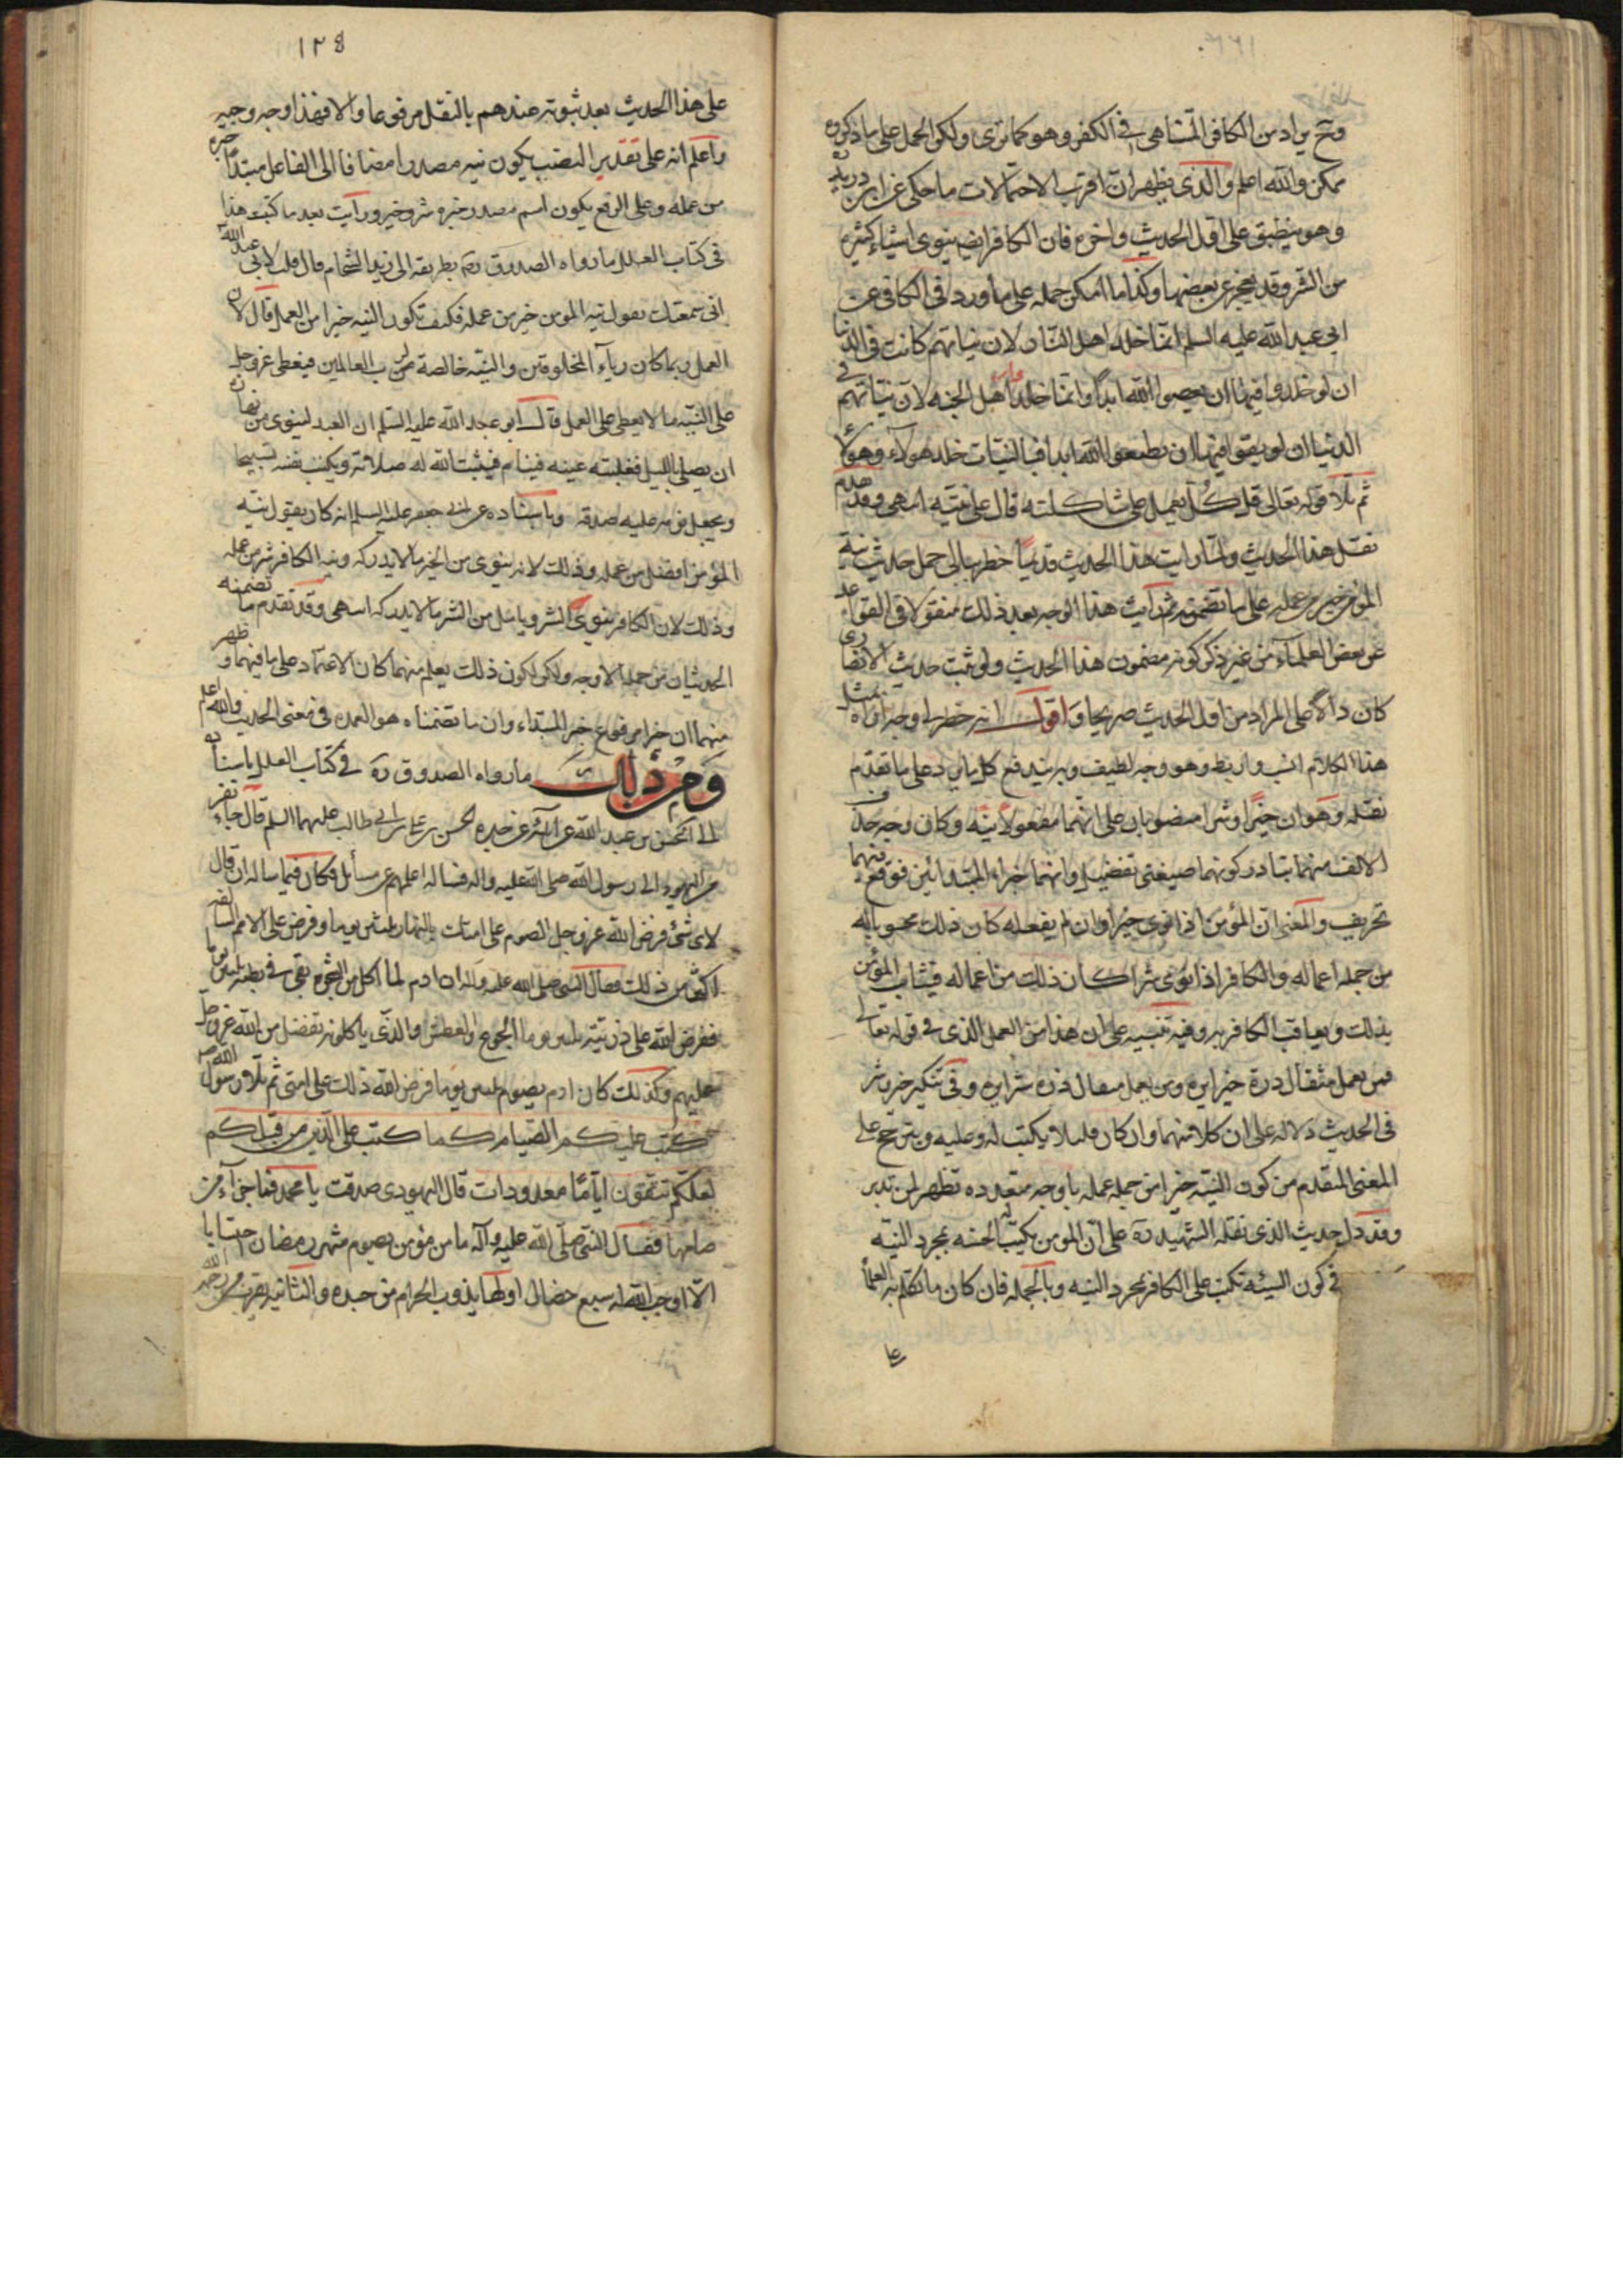 وح يراد من الكافر المتناهي في الكفر وهو كما ترى ولكن الحمل على ما ذكروه
ممكن والله اعلم والذي يظهر ان اقرب الاحتمالات ما حكي عن ابن دريد
وهو ينطبق على اول الحديث واخره فان الكافر ايضا ينوي اشياء كثيرة
من الشر وقد يعجز عن بعضها وكذا ما امكن حمله على ما ورد في الكافي عن
ابي عبد الله عليه السلم انما خلد اهل النار لان نياتهم كانت في الدنيا
ان لو خلدوا فيها ان يعصوا الله ابدا وانما خلد اهل الجنه لان نياتهم في
الدنيا ان لو بقوا فيها ان يطيعوا الله ابدا فبالنيات خلد هولاء وهولاء
ثم تلا قوله تعالى قل كل يعمل على شاكلته قال على نيته انتهى وقد تقدم
نقل هذا الحديث ولما رايت هذا الحديث قديما خطر ببالي حمل حديث نية
المؤمن خير من عمله على ما تضمنه ثم رايت هذا الوجه بعد ذلك منقولا في القواعد
عن بعض العلماء من غير ذكر كونه مضمون هذا الحديث ولو ثبت حديث الانصاري
كان دالا على المراد من اول الحديث صريحا واقول انه خطر لي وجه اراه بمثل
هذا الكلام انسب واربط وهو وجه لطيف وبه يندفع كل ما يرد على ما تقدم
نقله وهو ان خيرا وشرا منصوبان على انهما مفعولا نيته وكان وجه حذف
الالف منهما تبادر كونهما صيغتي تفضيل وانهما خبرا المبتدائين فوقع فيهما
تحريف والمعنى ان المؤمن اذا نوى خيرا وان لم يفعله كان ذلك محسوبا له
من جمله اعماله والكافر اذا نوى شرا كان ذلك من اعماله فيثاب المؤمن
بذلك ويعاقب الكافر به وفيه تنبيه على ان هذا من العمل الذي في قوله تعالى
فمن يعمل مثقال ذرة خيرا يره ومن يعمل مثقال ذره شرا يره وفي تنكير خير وشر
في الحديث دلاله على ان كلا منهما وان كان قليلا يكتب له وعليه ويترجح على
المعنى المتقدم من كون النية خيرا من جمله عمله باوجه متعدده تظهر لمن تدبر
وقد دل حديث الذي نقله الشهيد ره على ان المومن يكتب له الحسنه بمجرد النيه
في كون السيئه تكتب على الكافر بمجرد النيه وبالجمله فان كان ما تكلم به العلماء
على
١٢٤
على هذا الحديث بعد ثبوته عندهم بالنقل مرفوعا والا فهذا وجه وجيه
واعلم انه على تقدير النصب يكون نيه مصدرا مضافا الى الفاعل مبتدا خبره
من عمله وعلى الرفع يكون اسم مصدر خبره شر وخير ورايت بعد ما كتبت هذا
في كتاب العلل ما رواه الصدوق ره بطريقه الى زيد الشحام قال قلت لابي عبد الله
اني سمعتك تقول نيه المومن خير من عمله فكيف تكون النيه خيرا من العمل قال لان
العمل ربما كان رياء المخلوقين والنية خالصة لرب العالمين فيعطي عز وجل
على النيه ما لا يعطي على العمل قال ابو عبد الله عليه السلم ان العبد لينوي من نهاره
ان يصلي بالليل فغلبته عينه فينام فيثبت الله له صلاته ويكتب نفسه تسبيحا
ويجعل نومه عليه صدقه وباسناده عن ابي جعفر عليه السلم انه كان يقول نيه
المؤمن افضل من عمله وذلك لانه ينوي من الخير ما لا يدركه ونيه الكافر شر من عمله
وذلك لان الكافر ينوي الشر ويامل من الشر ما لا يدركه انتهى وقد تقدم ما تضمنه
الحديثان من جمله الاوجه ولكن لكون ذلك يعلم منهما كان الاعتماد على ما فيهما وظهر
منهما ان خيرا مرفوع خبر المبتداء وان ما تضمناه هو العمده في معنى الحديث والله اعلم
ومن ذلك ما رواه الصدوق ره في كتاب العلل باسناده
الى الحسن بن عبد الله عن آبائه عن جده الحسن بن علي بن ابي طالب عليهما السلم قال جاء نفر
من اليهود الى رسول الله صلى الله عليه واله فساله اعلمهم عن مسائل فكان فيما ساله ان قال
لاي شئ فرض الله عز وجل الصوم على امتك بالنهار ثلثين يوما وفرض على الامم السالفه
اكثر من ذلك فقال النبي صلى الله عليه واله ان ادم لما اكل من الشجره بقي في بطنه ثلثين يوما
ففرض الله على ذريته ثلثين يوما الجوع والعطش والذي ياكلونه تفضل من الله عز وجل
عليهم وكذلك كان ادم يصوم ثلثين يوما فرض الله ذلك على امتي ثم تلا رسول الله ص
كتب عليكم الصيام كما كتب على الذين من قبلكم
لعلكم تتقون اياما معدودات قال اليهودي صدقت يا محمد فما جزاء من
صامها فقال النبي صلى الله عليه وآله ما من مؤمن يصوم شهر رمضان احتسابا
الا اوجب الله له سبع خصال اولها يذوب الحرام من جسده والثانيه يقرب من رحمة الله